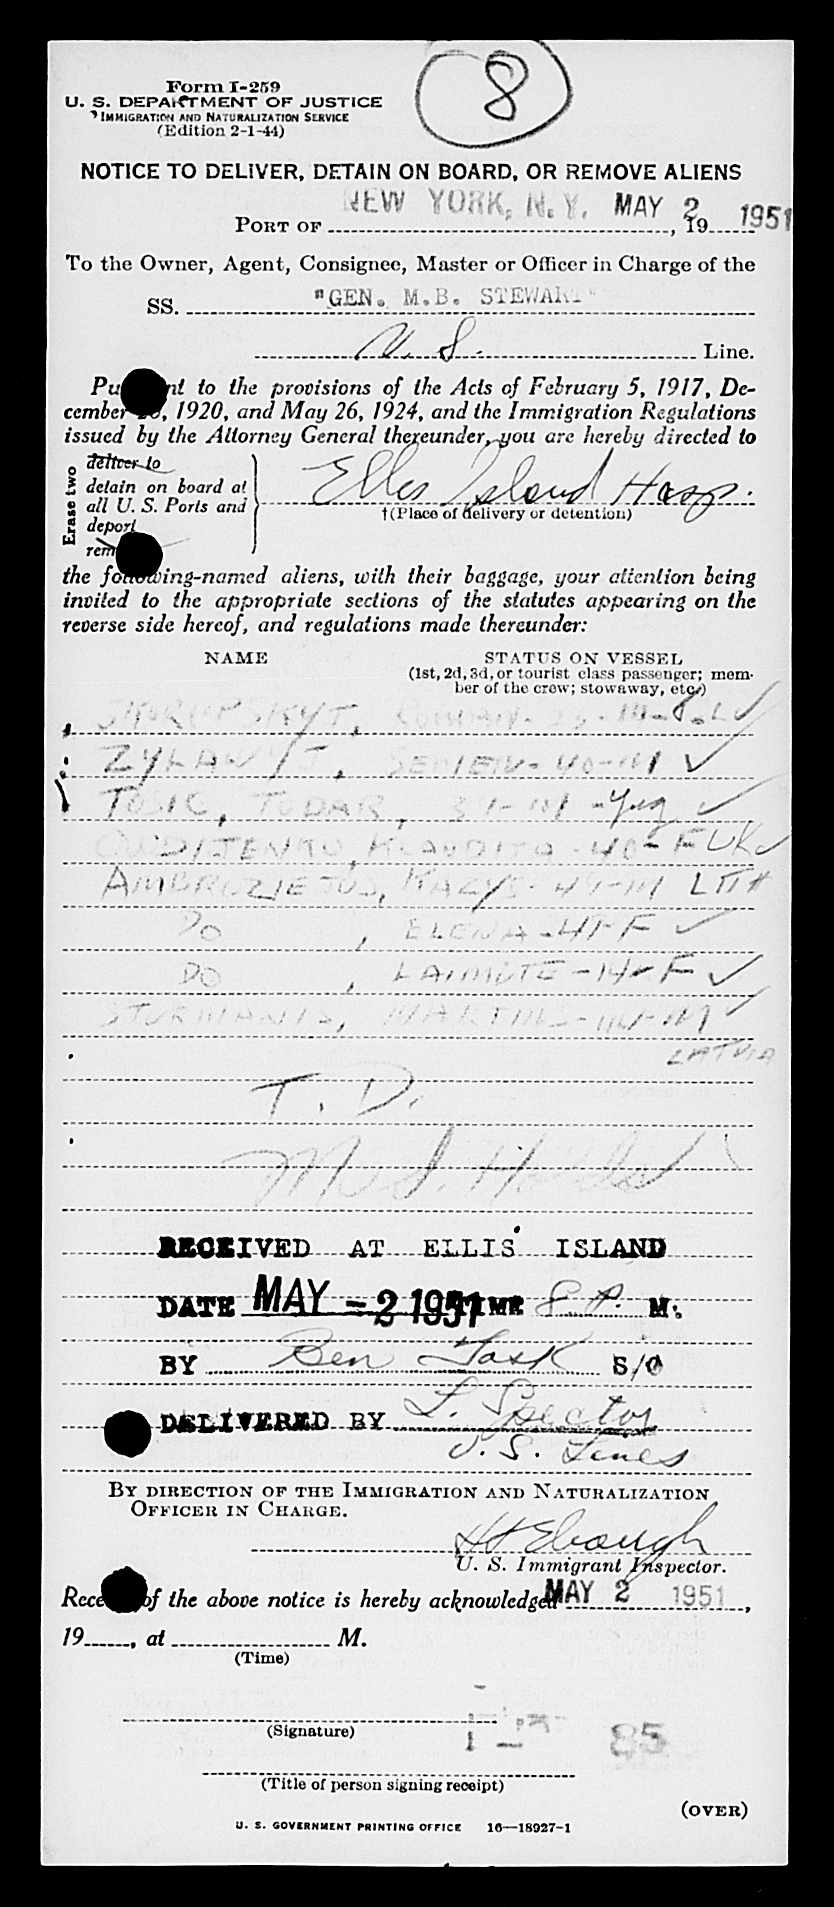 8
Form I-259
U. S. DEPARTMENT OF JUSTICE
IMMIGRATION AND NATURALIZATION SERVICE
(Edition 2-1-44)
NOTICE TO DELIVER, DETAIN ON BOARD, OR REMOVE ALIENS
PORT OF NEW YORK, N.Y. MAY 2, 19 1951
To the Owner, Agent, Consignee, Master or Officer in Charge of the
SS. "GEN. M.B. STEWART"
U. S. Line.
Pu nt to the provisions of the Acts of February 5, 1917, De-
cember , 1920, and May 26, 1924, and the Immigration Regulations
issued by the Attorney General thereunder, you are hereby directed to
Erase two
deliver to
detain on board at
all U. S. Ports and
deport
rem
Ellis Island Hosp.
†(Place of delivery or detention)
the following-named aliens, with their baggage, your attention being
invited to the appropriate sections of the statutes appearing on the
reverse side hereof, and regulations made thereunder:
NAME STATUS ON VESSEL
(1st, 2d, 3d, or tourist class passenger; mem-
ber of the crew; stowaway, etc.)
ROMAN
ZYLAWYJ, SEMEN - 40 - M ✓
TOSIC, TODAR, 37 - M - Yug ✓
KLAVDIJA - 40 - F UK ✓
AMBROZIEJUS, KAZYS - 49 - M LITH
DO, ELENA - 41 - F ✓
DO, LAIMUTE - 14 - F ✓
STURMANIS, MARTINS - M ✓
LATVIA
T. D.
Med. Holds
RECEIVED AT ELLIS ISLAND
DATE MAY -2 1951 TIME 8 P. M.
BY Ben Task S/O
DELIVERED BY L. Spector
U. S. Lines
BY DIRECTION OF THE IMMIGRATION AND NATURALIZATION
OFFICER IN CHARGE.
H H Ebaugh
U. S. Immigrant Inspector.
Rece of the above notice is hereby acknowledged MAY 2 1951,
19, at M.
(Time)
(Signature)
85
(Title of person signing receipt)
(OVER)
U. S. GOVERNMENT PRINTING OFFICE 16—18927-1